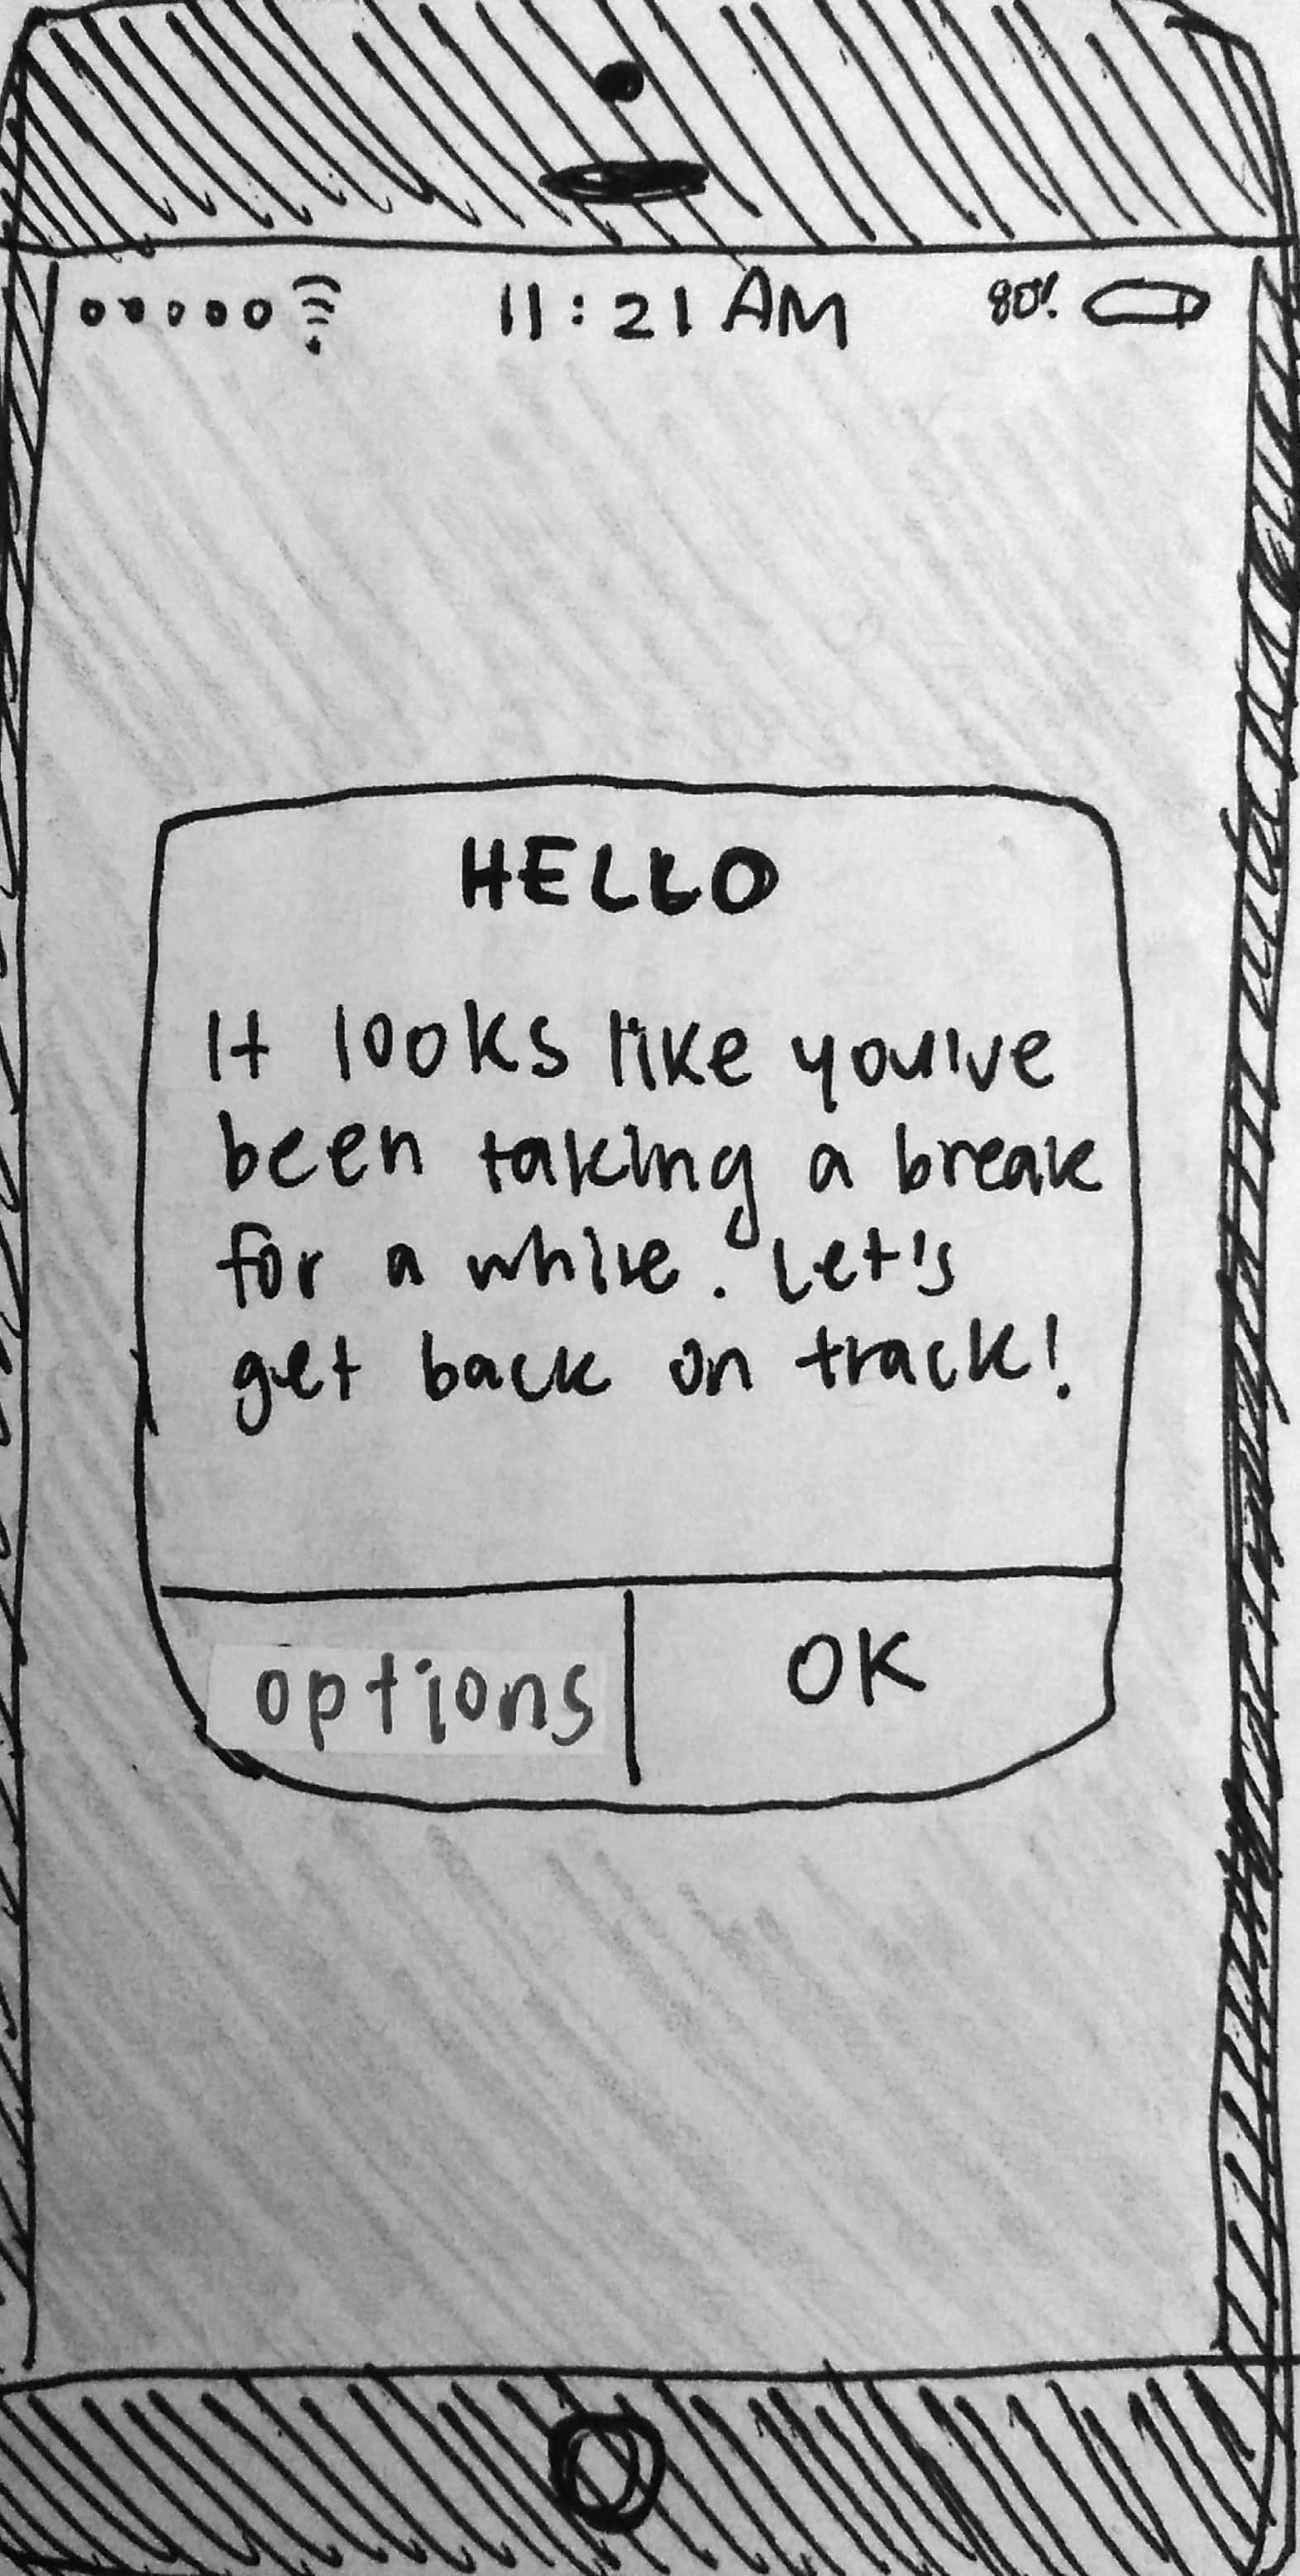 11:21 AM 80%
HELLO
It looks like you've
been taking a break
for a while. Let's
get back on track!
options OK